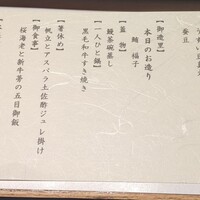 蚕豆
【御造里】
本日のお造り
【蓋物】
鰻茶碗蒸し
【一人ひと鍋】
黒毛和牛すき焼き
【箸休め】
帆立とアスパラ土佐酢ジュレ掛け
【御食事】
桜海老と新牛蒡の五目御飯